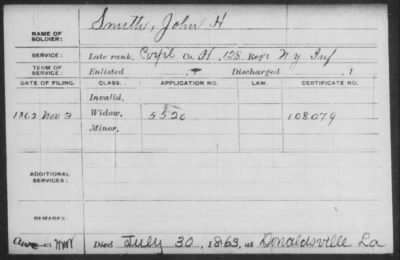 NAME OF SOLDIER: Smith, John H
SERVICE: Late rank, Corp'l Co. H, 128 Reg't N.Y. Inf
TERM OF SERVICE: Enlisted , 1 Discharged , 1
DATE OF FILING. CLASS. APPLICATION NO. LAW. CERTIFICATE NO.
Invalid,
1862 Nov Widow, 5520 108079
Minor,
ADDITIONAL SERVICES:
REMARKS:
Died July 30, 1863, at Donaldsville La